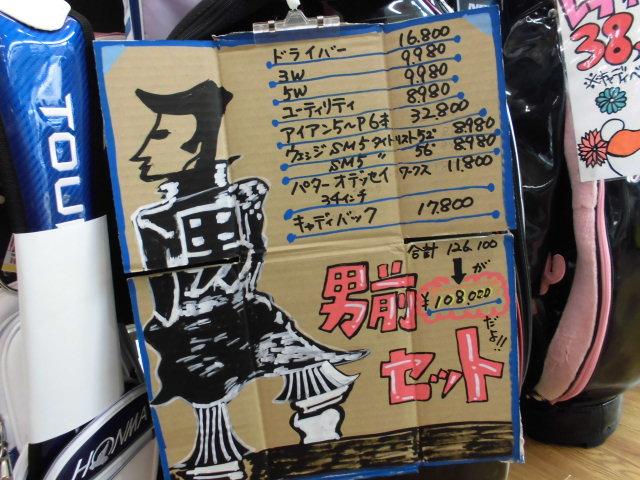 ドライバー 16.800
3W 9.980
5W 9.980
ユーティリティ 8.980
アイアン5〜P6本 32.800
ウェッジ SM5 タイトリスト52° 8.980
SM5 〃 56° 8.980
パター オデッセイ ワークス 11.800
34インチ
キャディバック 17.800
合計 126.100
が
¥108,000
だよ!!
男前
セット
男
TOU
HONMA
38
※キャディバ